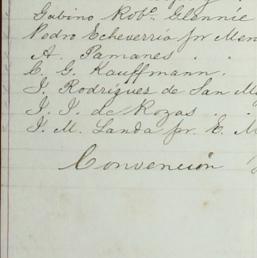 Gabino Robto. Glennie
Pedro Echeverria por Men
A. Pamanes . .
C. G. Kauffmann.
J. Rodriguez de San M
J. I. de Rozas . .
J. M. Landa por E. M
Convención